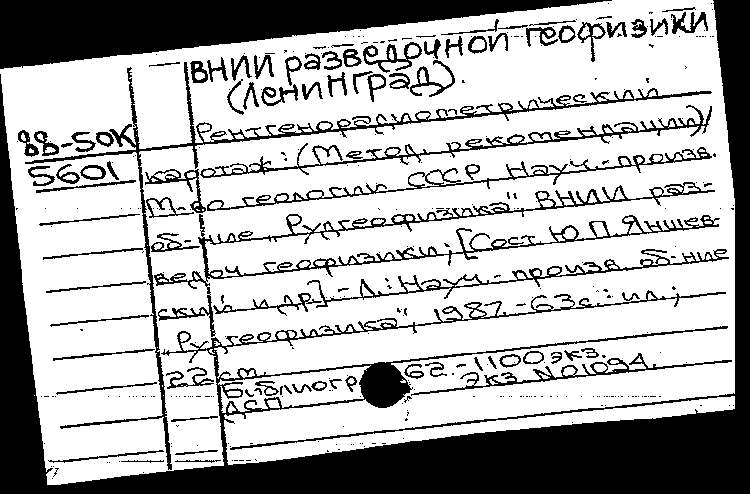 ВНИИ разведочной геофизики
(Ленинград).
88-50К
5601
Рентгенорадиометрический
каротаж: (Метод. рекомендации)/
М-во геологии СССР, Науч.-произв.
об-ние „Рудгеофизика", ВНИИ раз-
ведоч. геофизики; [Сост. Ю.П. Яншев-
ский и др.] - Л.: Науч.-произв. об-ние
„Рудгеофизика", 1987. - 63с.: ил.;
22 см.
Библиогр 62. - 1100 экз.
ДСП. Экз. N01094.